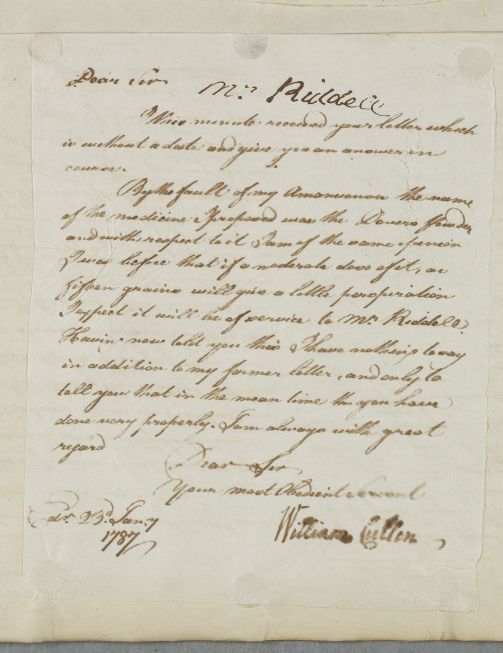 Dear Sir
Mr. Riddell
This minute received your letter which
is without a date and give you an answer in
course.
By the fault of my Amanuensis the name
of the medicine I proposed was the Dovers Powder
and with respect to it I am of the same opinion
I was before that if a moderate dose of it, as
fifteen grains will give a little perspiration
I expect it will be of service to Mr. Riddell.
Having now told you this I have nothing to say
in addition to my former letter, and only to
tell you that in the mean time you have
done very properly. I am always with great
regard
Dear Sir
Your most Obedient Servant
William Cullen
23d. Jany
1787